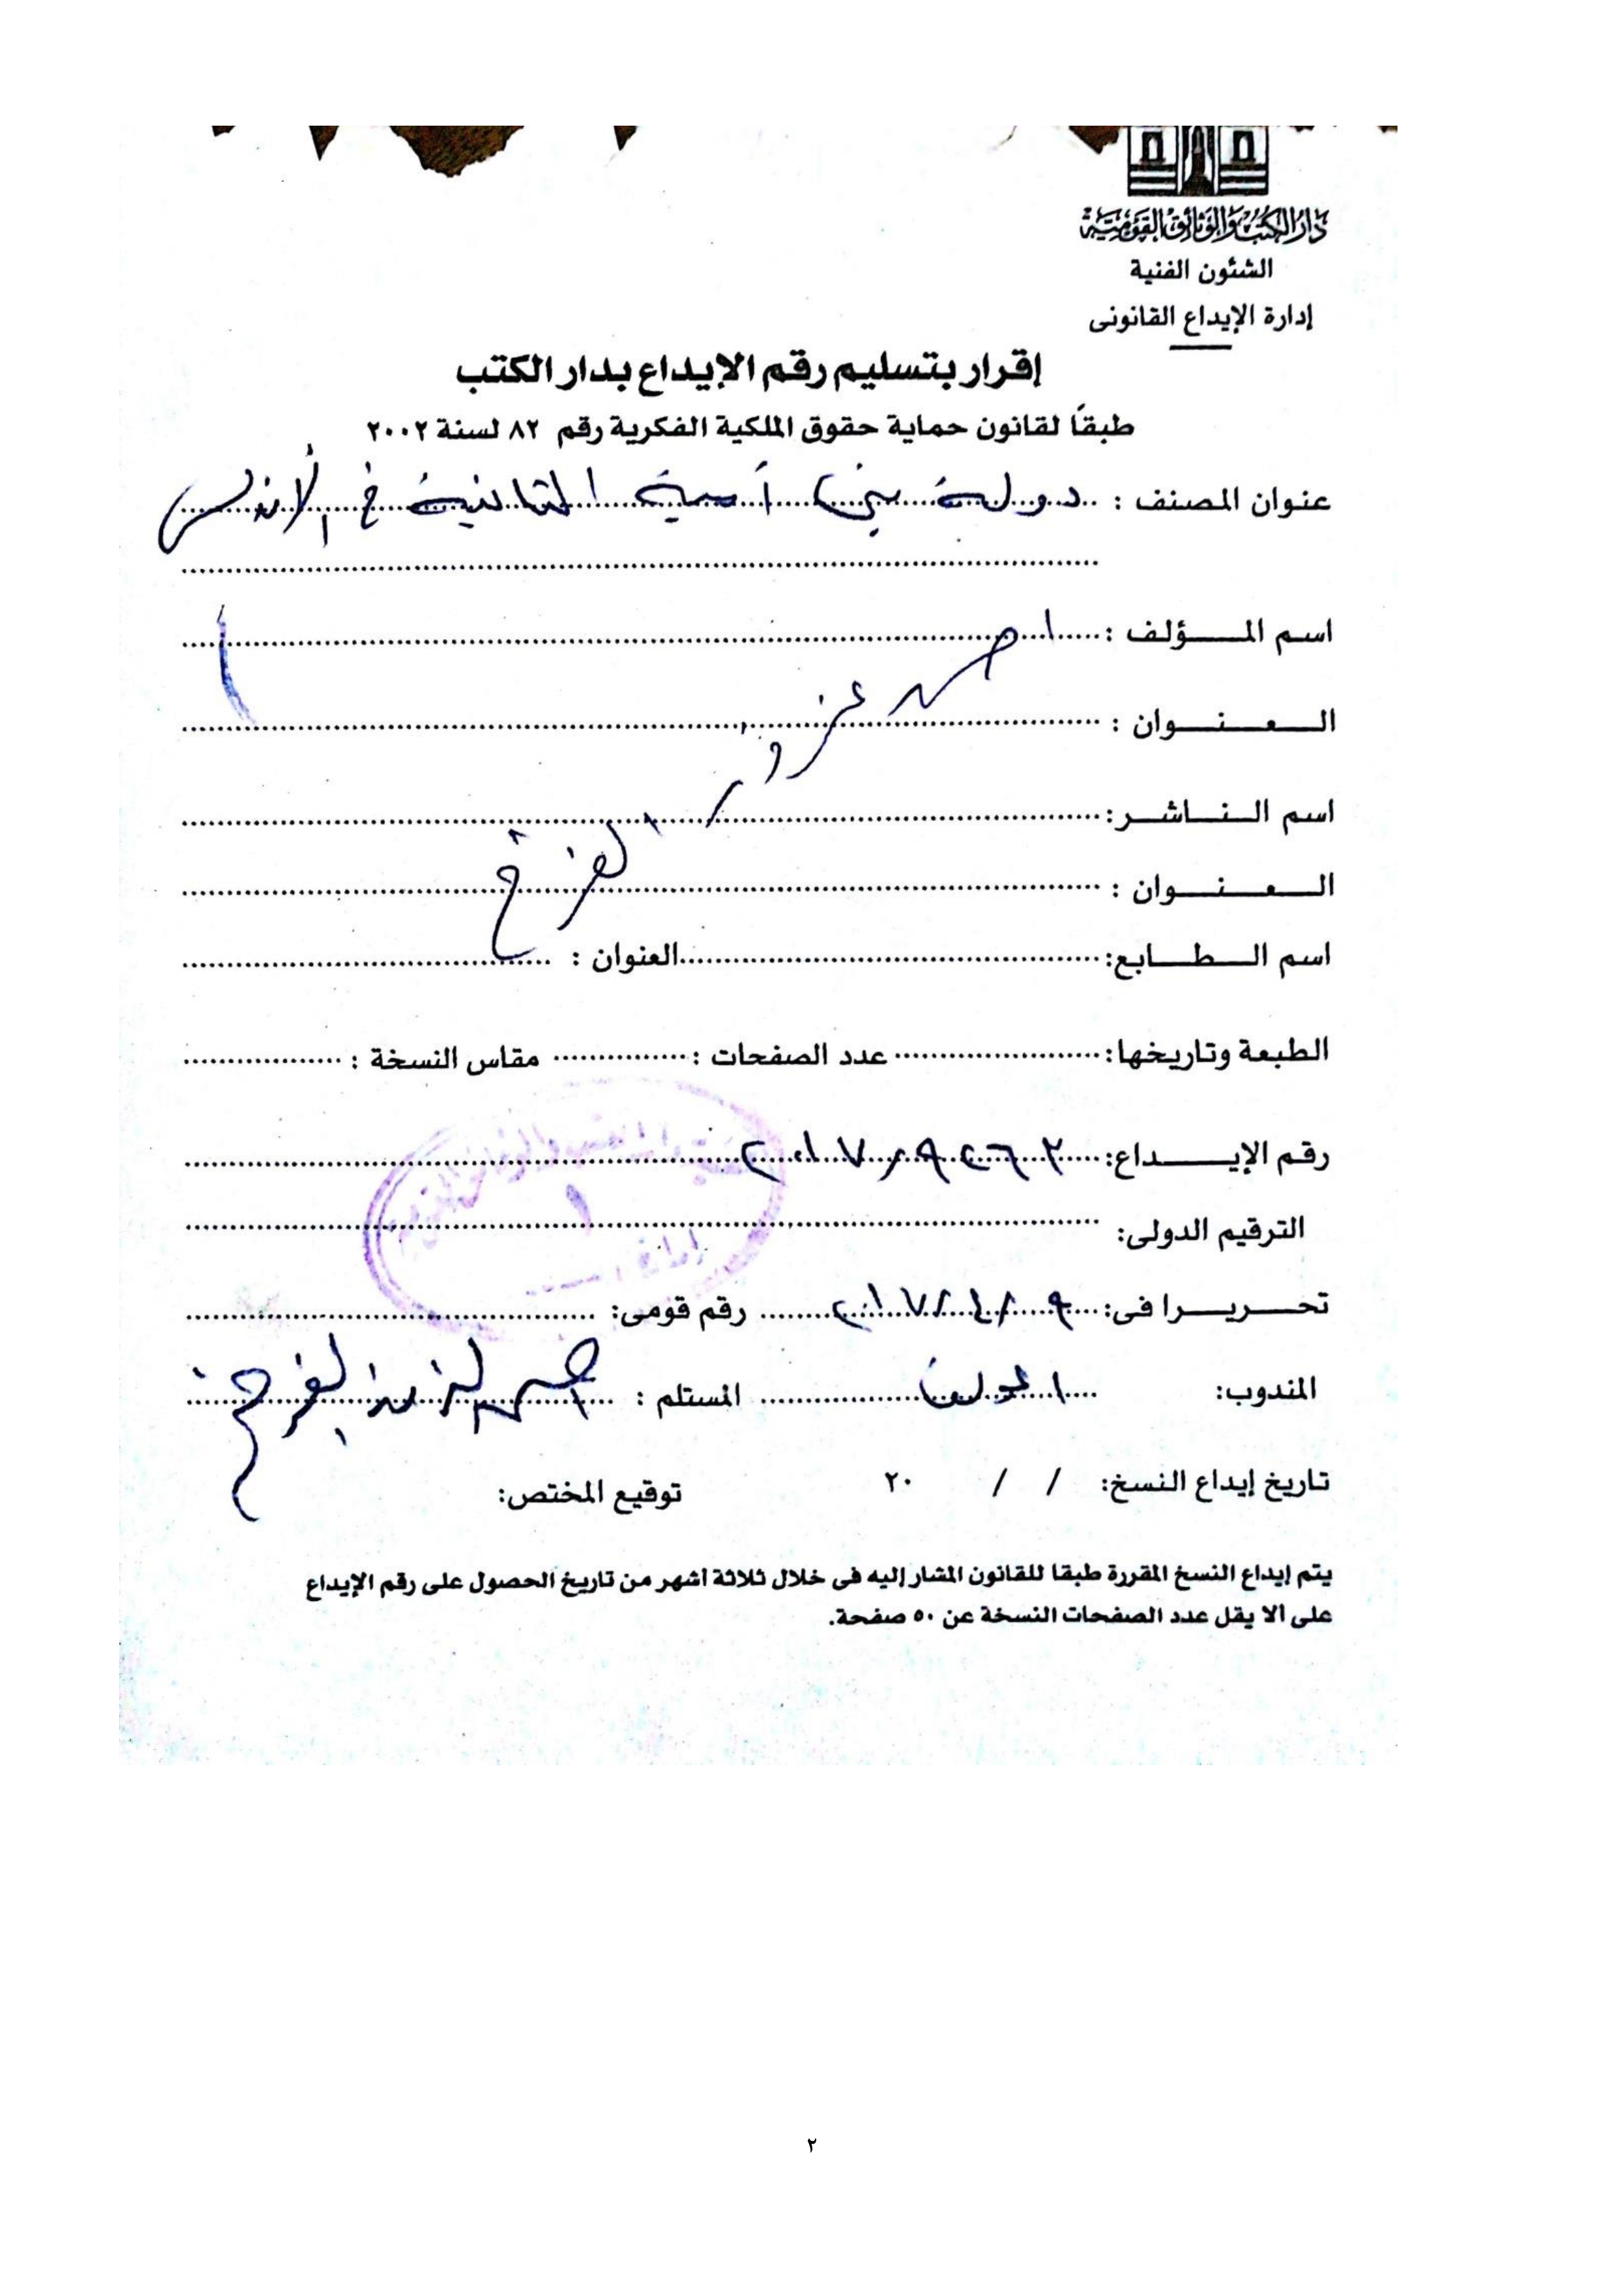 دار الكتب والوثائق القومية
الشئون الفنية
إدارة الإيداع القانونى
إقرار بتسليم رقم الإيداع بدار الكتب
طبقاً لقانون حماية حقوق الملكية الفكرية رقم ٨٢ لسنة ٢٠٠٢
عنوان المصنف : دولة بني أمية الثانية في الأندلس
اسم المؤلف : احمد
العنوان : عزوز
اسم الناشر:
العنوان : الفرخ
اسم الطابع: العنوان :
الطبعة وتاريخها: عدد الصفحات : مقاس النسخة :
رقم الإيداع: ٩٢٦٣ / ٢٠١٧
الترقيم الدولى:
تحريرا فى: ٩ / ٤ / ٢٠١٧ رقم قومى:
المندوب: المؤلف المستلم :
تاريخ إيداع النسخ: / / ٢٠ توقيع المختص:
يتم إيداع النسخ المقررة طبقا للقانون المشار إليه فى خلال ثلاثة أشهر من تاريخ الحصول على رقم الإيداع
على الا يقل عدد الصفحات النسخة عن ٥٠ صفحة.
٢